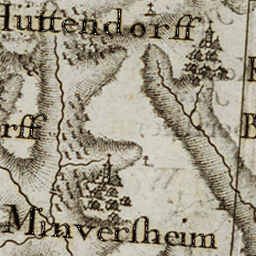 Huttendorff
rff
Minversheim